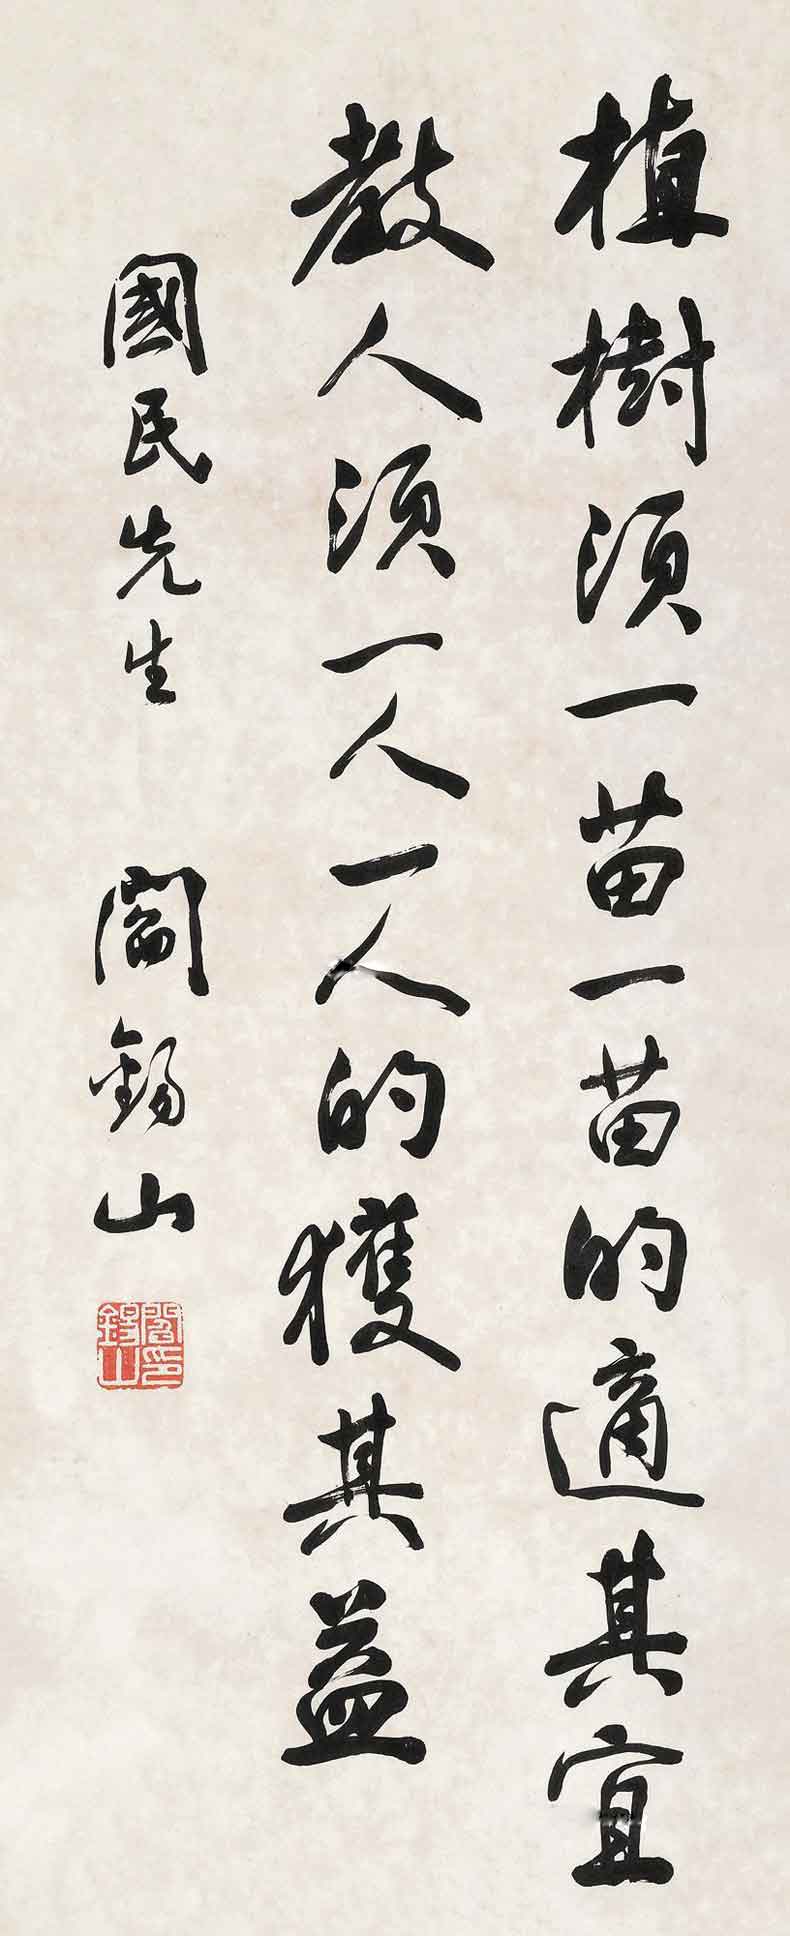 植樹須一苗一苗的適其宜
教人須一人一人的獲其益
國民先生 閻錫山
閻錫山印